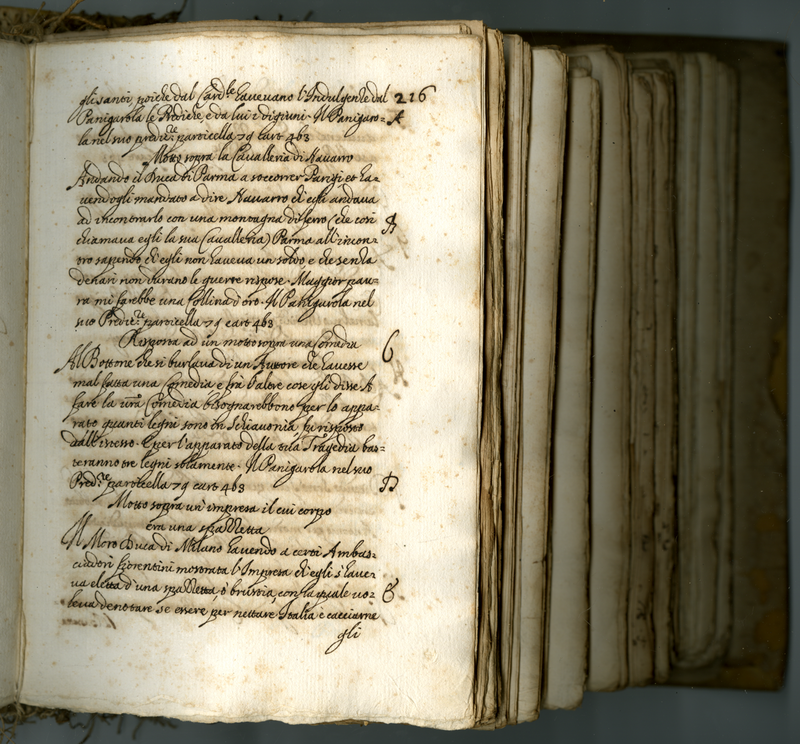 gli santi, poiche dal Card.le haveuano l'Indulgenze dal 216
Panigarola le Prediche, e da lui i digiuni. Il Panigaro= A
la nel suo predic.re particella 79 cart 463
Motto sopra la Cavalleria di Navarro
Andando il Duca di Parma a soccorrer Parigi et ha=
vendogli mandato a dire Navarro ch'egli andava
ad incontrarlo con una montagna di ferro (che così
chiamava egli la sua Cavalleria) Parma all'incon=
tro sapendo ch'egli non haveva un soldo e che senza
denari non durano le guerre rispose. Maggior pau=
ra mi farebbe una Collina d'oro. Il Panigarola nel
suo Predic.re particella 79 cart 463
Risposta ad un motto sopra una Comedia
Al Bottone che si burlava di un Autore che havesse
mal fatta una Comedia e frà l'altre cose gli disse A
fare la vra Comedia bisognarebbono per lo appa=
rato quanti legni sono in Schiavonia, fù risposto
dall'istesso. E per l'apparato della tua Tragedia bas=
teranno tre legni solamente. Il Panigarola nel suo
Pred.re particella 79 cart 463
Motto sopra un'impresa il cui corpo
era una spazzetta
Il Moro Duca di Milano havendo a certi Ambas=
ciadori fiorentini mostrata l'Impresa ch'egli s'have=
va eletta d'una spazzetta ò bruscia, con la quale vo=
leva denotare se essere per nettare Italia e cacciarne
gli